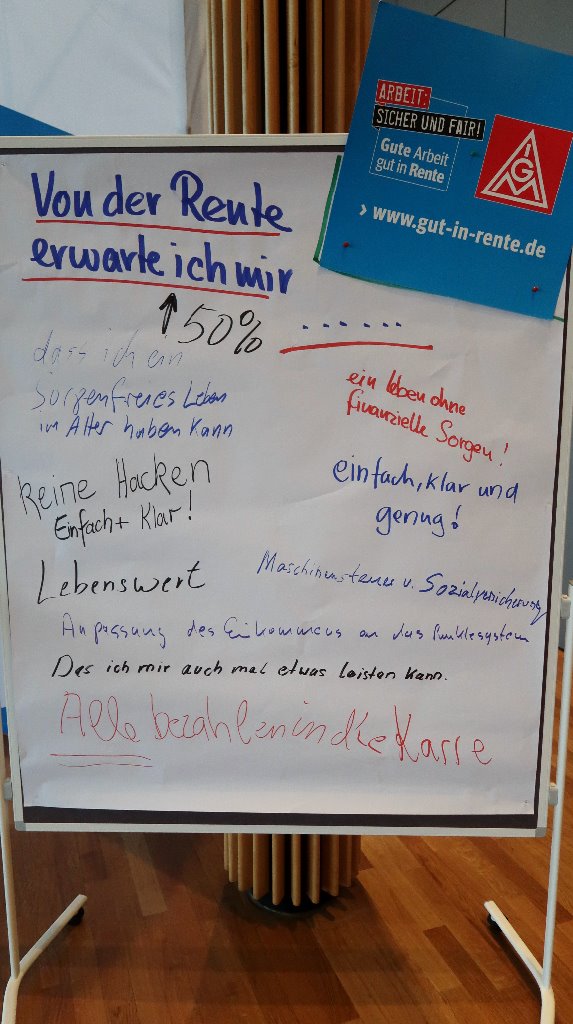 ARBEIT:
SICHER UND FAIR!
Gute Arbeit
gut in Rente
IGM
> www.gut-in-rente.de
Von der Rente
erwarte ich mir
↑ 50%
......
dass ich ein
Sorgenfreies Leben
im Alter haben kann
ein leben ohne
finanzielle Sorgen!
keine Hacken
Einfach + Klar!
einfach, klar und
genug!
Lebenswert
Maschinensteuer v. Sozialversicherung
Anpassung des Einkommens an das Punktesystem
Das ich mir auch mal etwas leisten kann.
Alle bezahlen in die Kasse